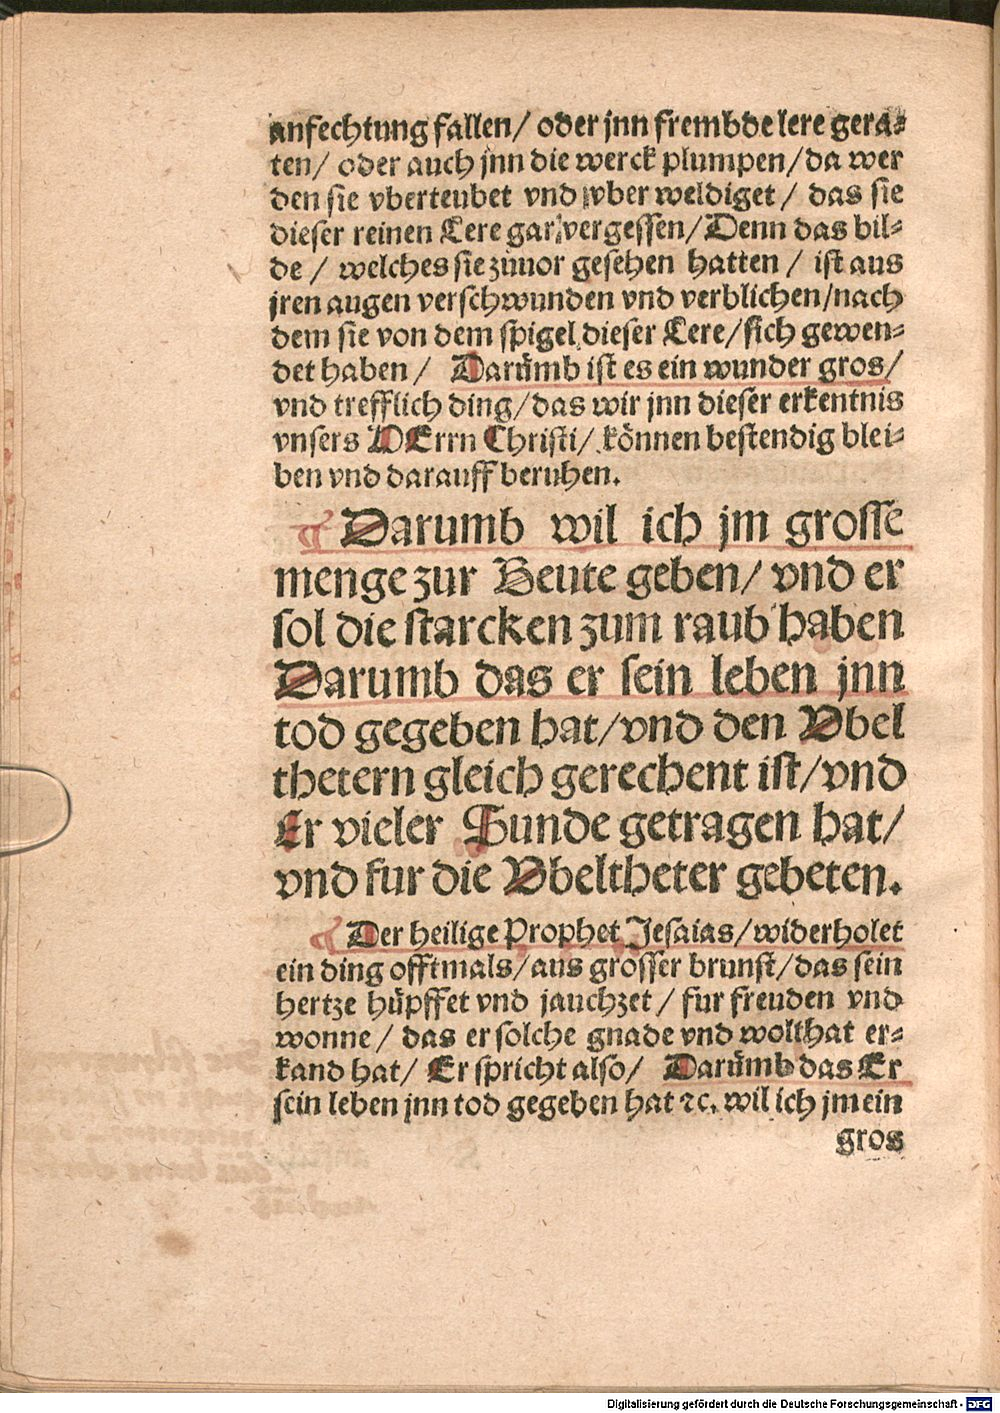 anfechtung fallen/ oder jnn frembde lere gera⸗
ten/ oder auch jnn die werck plumpen/ da wer
den sie vberteubet vnd vber weldiget/ das sie
dieser reinen Lere gar vergessen/ Denn das bil⸗
de/ welches sie zuuor gesehen hatten/ ist aus
jren augen verschwunden vnd verblichen/ nach
dem sie von dem spigel dieser Lere/ sich gewen⸗
det haben/ Darümb ist es ein wunder gros/
vnd trefflich ding/ das wir jnn dieser erkentnis
vnsers HErrn Christi/ können bestendig blei⸗
ben vnd darauff beruhen.
Darumb wil ich jm grosse
menge zur Beute geben/ vnd er
sol die starcken zum raub haben
Darumb das er sein leben jnn
tod gegeben hat/ vnd den Vbel
thetern gleich gerechent ist/ vnd
Er vieler Sunde getragen hat/
vnd fur die Vbeltheter gebeten.
Der heilige Prophet Jesaias/ widerholet
ein ding offtmals/ aus grosser brunst/ das sein
hertze hüpffet vnd jauchzet/ fur freuden vnd
wonne/ das er solche gnade vnd wolthat er⸗
kand hat/ Er spricht also/ Darümb das Er
sein leben jnn tod gegeben hat ꝛc. wil ich jm ein
gros
Digitalisierung gefördert durch die Deutsche Forschungsgemeinschaft - DFG